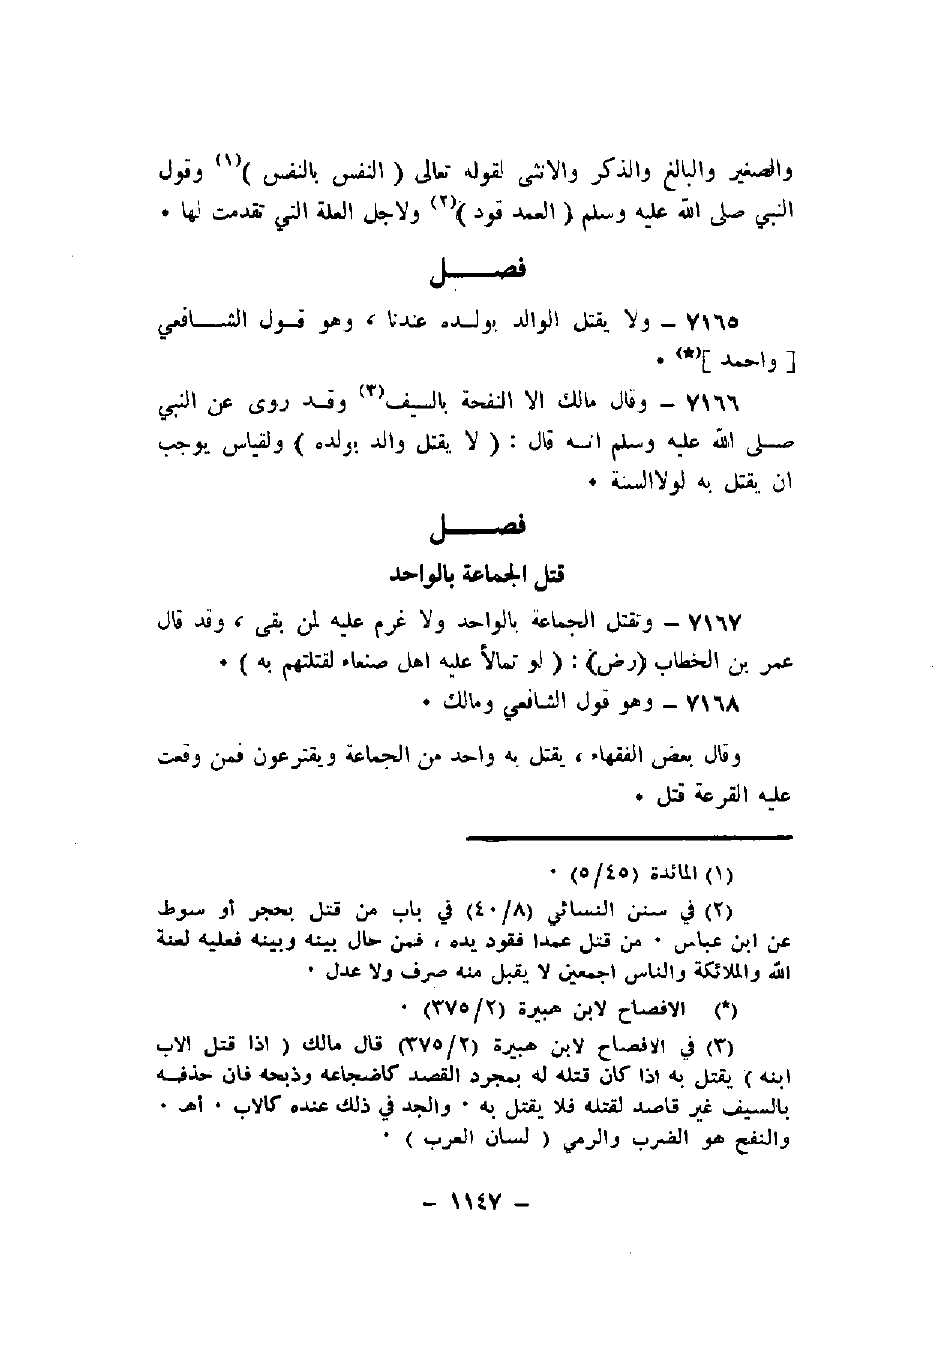 والصغير والبالغ والذكر والانثى لقوله تعالى ( النفس بالنفس )(١) وقول
النبي صلى الله عليه وسلم ( العمد قود )(٢) ولاجل العلة التي تقدمت لها ٠
فصـــــل
٧١٦٥ – ولا يقتل الوالد بولـده عندنا ، وهو قـول الشـــافعي
[ واحمد ](*) ٠
٧١٦٦ – وقال مالك الا النفحة بالسيف(٣) وقـد روى عن النبي
صـلى الله عليه وسلم انـه قال : ( لا يقتل والد بولده ) ولقياس يوجب
ان يقتل به لولاالسنة ٠
فصـــــل
قتل الجماعة بالواحد
٧١٦٧ – وتقتل الجماعة بالواحد ولا غرم عليه لمن بقى ، وقد قال
عمر بن الخطاب (رض) : ( لو تمالأ عليه اهل صنعاء لقتلتهم به ) ٠
٧١٦٨ – وهو قول الشافعي ومالك ٠
وقال بعض الفقهاء ، يقتل به واحد من الجماعة ويقترعون فمن وقعت
عليه القرعة قتل ٠
(١) المائدة (٥/٤٥) ٠
(٢) في سنن النسائي (٤٠/٨) في باب من قتل بحجر أو سوط
عن ابن عباس ٠ من قتل عمدا فقود يده ، فمن حال بينه وبينه فعليه لعنة
الله والملائكة والناس اجمعين لا يقبل منه صرف ولا عدل ٠
(*) الافصاح لابن هبيرة (٣٧٥/٢) ٠
(٣) في الافصاح لابن هبيرة (٣٧٥/٢) قال مالك ( اذا قتل الاب
ابنه ) يقتل به اذا كان قتله له بمجرد القصد كاضجاعه وذبحه فان حذفـه
بالسيف غير قاصد لقتله فلا يقتل به ٠ والجد في ذلك عنده كالاب ٠ أهـ ٠
والنفح هو الضرب والرمي ( لسان العرب ) ٠
– ١١٤٧ –